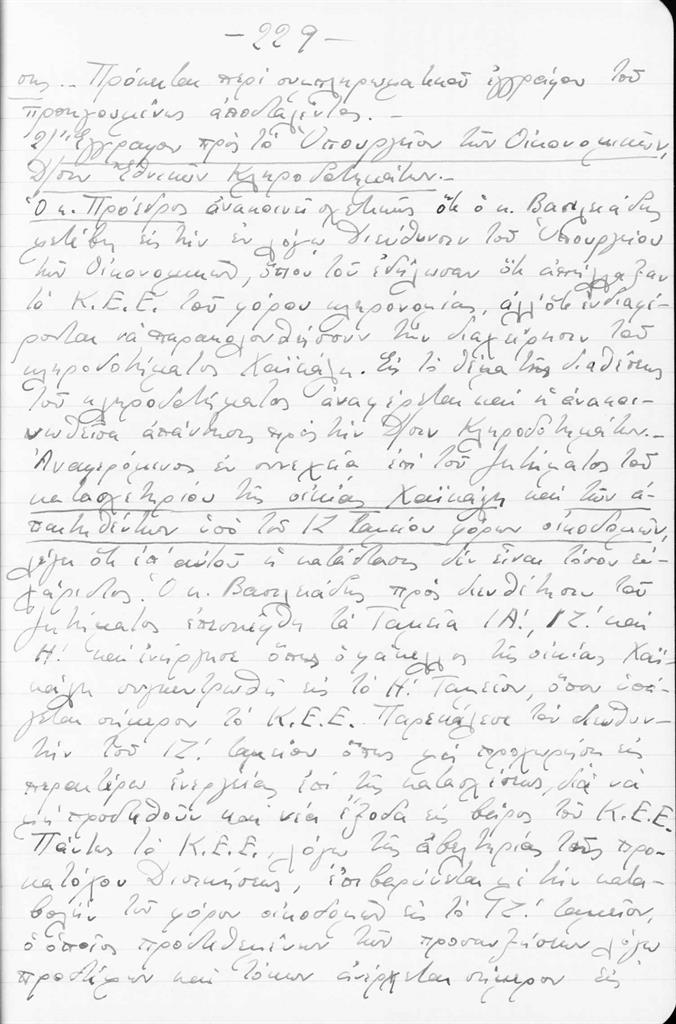 -229-
σης.. Πρόκειται περί συμπληρωματικοῦ ἐγγράφου τοῦ
προηγουμένως ἀποσταλέντος.-
2) Ἔγγραφον πρός τό Ὑπουργεῖον τῶν Οἰκονομικῶν,
Δ/σιν Ἐθνικῶν Κληροδοτημάτων.-
Ὁ κ. Πρόεδρος ἀνακοινεῖ σχετικῶς ὅτι ὁ κ. Βασιλειάδης
μετέβη εἰς τήν ἐν λόγω Διεύθυνσιν τοῦ Ὑπουργείου
τῶν Οἰκονομικῶν, ὅπου τοῦ ἐδήλωσαν ὅτι ἀπήλλαξαν
τό Κ.Ε.Ε. τοῦ φόρου κληρονομίας, ἀλλ' ὅτι ἐνδιαφέ-
ρονται νά παρακολουθήσουν τήν διαχείρησιν τοῦ
κληροδοτήματος Χαϊκάλη. Εἰς τό θέμα τῆς διαθέσεως
τοῦ κληροδοτήματος ἀναφέρεται καί ἡ ἀνακοι-
νωθεῖσα ἀπάντησις πρός τήν Δ/σιν Κληροδοτημάτων.-
Ἀναφερόμενος ἐν συνεχεία ἐπί τοῦ ζητήματος τοῦ
κατασχετηρίου τῆς οἰκίας Χαϊκάλη καί τῶν ἀ-
παιτηθέντων ὑπό τοῦ ΙΖ Ταμείου φόρων οἰκοδομῶν,
λέγει ὅτι ἐπ' αὐτοῦ ἡ κατάστασις δέν εἶναι τόσον εὐ-
χάριστος. Ὁ κ. Βασιλειάδης πρός διευθέτησιν τοῦ
ζητήματος ἐπεσκέφθη τά Ταμεῖα ΙΑ!, ΙΖ! καί
Η! καί ἐνήργησε ὅπως ὁ φάκελλος τῆς οἰκίας Χαϊ-
κάλη συγκεντρωθῆ εἰς τό Η! Ταμεῖον, ὅπου ὑπά-
γεται σήμερον τό Κ.Ε.Ε. Παρεκάλεσε τόν διευθυν-
τήν τοῦ ΙΖ! ταμείου ὅπως μή προχωρήση εἰς
περαιτέρω ἐνεργείας ἐπί τῆς κατασχέσεως, διά νά
μή προστεθοῦν καί νέα ἔξοδα εἰς βάρος τοῦ Κ.Ε.Ε.
Πάντως τό Κ.Ε.Ε., λόγω τῆς ἀβελτηρίας τῆς προ-
κατόχου Διοικήσεως, ἐπιβαρύνεται μέ τήν κατα-
βολήν τοῦ φόρου οἰκοδομῶν εἰς τό ΙΖ! ταμεῖον,
ὁ ὁποῖος προστεθεμένων τῶν προσαυξήσεων λόγω
προστίμων καί τόκων ἀνέρχεται σήμερον εἰς